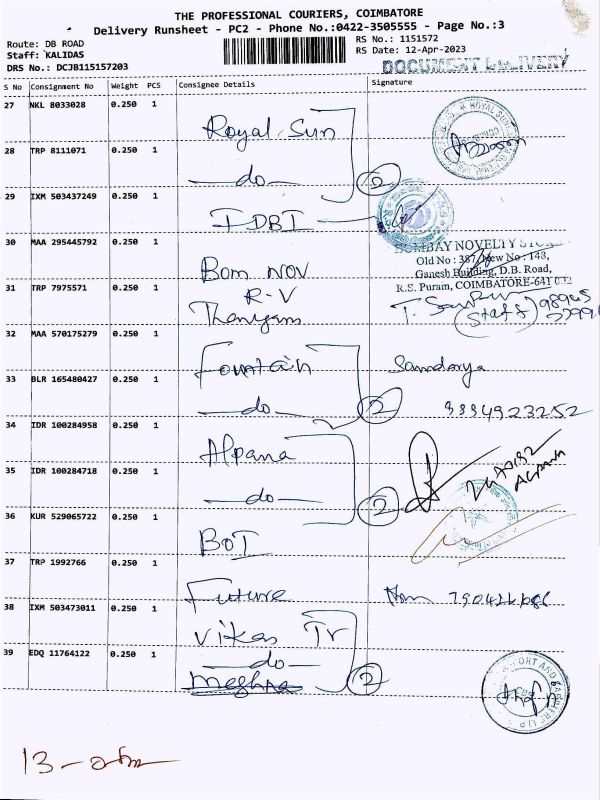 THE PROFESSIONAL COURIERS, COIMBATORE
Delivery Runsheet - PC2 - Phone No.:0422-3505555 - Page No.:3
Route: DB ROAD
Staff: KALIDAS
DRS No.: DCJB115157203
RS No.: 1151572
RS Date: 12-Apr-2023
DOCUMENT DELIVERY
S No Consignment No Weight PCS Consignee Details Signature
27 NKL 8033028 0.250 1
Royal Sun
28 TRP 8111071 0.250 1
—do— 2
29 IXM 503437249 0.250 1
IDBI
30 MAA 295445792 0.250 1
Bom Nov
BOMBAY NOVELTY
Old No : 387, New No : 148,
Ganesh Building, D.B. Road,
R.S. Puram, COIMBATORE-641 002
31 TRP 7975571 0.250 1
R-V
(Staff)
32 MAA 570175279 0.250 1
Fountain
33 BLR 165480427 0.250 1
—do— 2
34 IDR 100284958 0.250 1
Alpana
35 IDR 100284718 0.250 1
—do— 2
36 KUR 529065722 0.250 1
BOI
37 TRP 1992766 0.250 1
Future
38 IXM 503473011 0.250 1
Vikas Tr
39 EDQ 11764122 0.250 1
—do— 2
Meghna
13 -